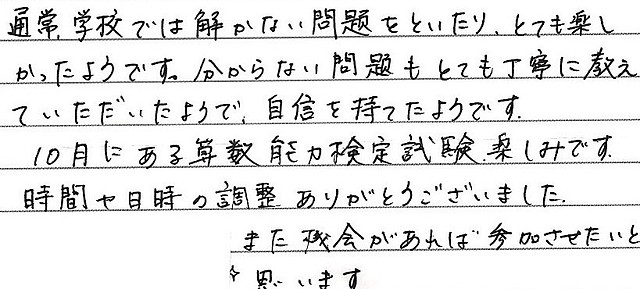 通常、学校では解かない問題をといたり、とても楽し
かったようです。分からない問題もとても丁寧に教え
ていただいたようで、自信を持てたようです。
10月にある算数能力検定試験、楽しみです。
時間や日時の調整ありがとうございました。
また機会があれば参加させたいと
思います